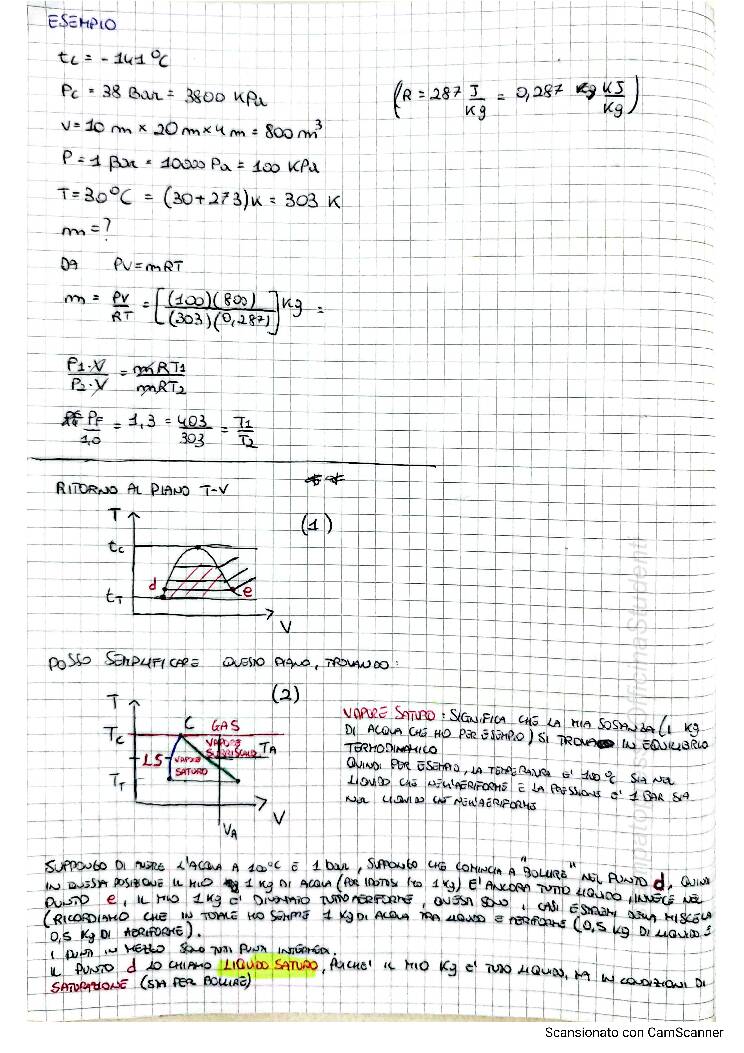 ESEMPIO
tc = -141 °C
Pc = 38 Bar = 3800 KPa
(R = 287 J/Kg = 0,287 KJ/Kg)
V = 10 m × 20 m × 4 m = 800 m³
P = 1 Bar = 10000 Pa = 100 KPa
T = 30°C = (30+273)K = 303 K
m = ?
DA PV = mRT
m = PV/RT = [(100)(800)/(303)(0,287)] Kg =
P1·V/P2·V = mRT1/mRT2
PF/1,0 = 1,3 = 403/303 = T1/T2
RITORNO AL PIANO T-V
(1)
T
tc
d
e
tT
V
POSSO SEMPLIFICARE QUESTO PIANO, TROVANDO:
(2)
T
C
GAS
Tc
VAPORE SURRISCALD
TA
LS
VAPORE SATURO
TT
V
VA
VAPORE SATURO: SIGNIFICA CHE LA MIA SOSTANZA (1 KG
DI ACQUA CHE HO PER ESEMPIO) SI TROVA IN EQUILIBRIO
TERMODINAMICO
QUINDI PER ESEMPIO, LA TEMPERATURA E' 100°C SIA NEL
LIQUIDO CHE NELL'AERIFORME E LA PRESSIONE E' 1 BAR SIA
NEL LIQUIDO CHE NELL'AERIFORME
SUPPONGO DI AVERE L'ACQUA A 100°C E 1 bar, SUPPONGO CHE COMINCIA A "BOLLIRE" NEL PUNTO d, QUINDI
IN QUESTA POSIZIONE IL MIO 1 Kg DI ACQUA (PER IPOTESI HO 1 Kg) E' ANCORA TUTTO LIQUIDO, INVECE NEL
PUNTO e, IL MIO 1 KG E' DIVENTATO TUTTO AERIFORME, QUESTI SONO I CASI ESTREMI DELLA MISCELA
(RICORDIAMO CHE IN TOTALE HO SEMPRE 1 KG DI ACQUA TRA LIQUIDO E AERIFORME (0,5 KG DI LIQUIDO E
0,5 Kg DI AERIFORME).
I PUNTI IN MEZZO SONO TUTTI PUNTI INTERMEDI.
IL PUNTO d LO CHIAMO LIQUIDO SATURO, POICHE' IL MIO KG E' TUTTO LIQUIDO, MA IN CONDIZIONI DI
SATURAZIONE (STA PER BOLLIRE)
Scansionato con CamScanner